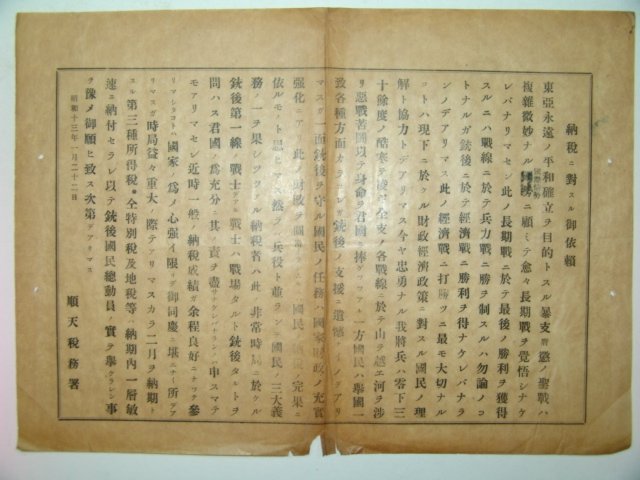 納税ニ對スル御依頼
東亞永遠ノ平和確立ヲ目的トスル暴支膺懲ノ聖戰ハ
複雜微妙ナル國際情勢ニ顧ミテ愈々長期戰ヲ覺悟シナケ
レバナリマセン此ノ長期戰ニ於テ最後ノ勝利ヲ獲得
スルニハ戰線ニ於テ兵力戰ニ勝ヲ制スルハ勿論ノコ
トナルガ銃後ニ於テ經濟戰ニ勝利ヲ得ナケレバナラ
ンノデアリマス此ノ經濟戰ニ打勝ツニ最モ大切ナル
コトハ現下ニ於ケル財政經濟政策ニ對スル國民ノ理
解ト協力トデアリマス今ヤ忠勇ナル我將兵ハ零下三
十餘度ノ酷寒ヲ凌ギ全支ノ各戰線ニ於テ山ヲ越エ河ヲ涉
リ惡戰苦鬪以テ身命ヲ君國ニ捧ゲツツアリ一方國民ハ擧國一
致各種方面カラ銃後ノ支援ニ遺憾ナイノデアリ
マスガ一面銃後ヲ守ル國民ノ任務ハ國家財政ノ充實
强化ニアリ此ノ財政ヲ國民ノ完果ニ
依ルモノト思ヒマス然ラバ兵役ト並ラシ國民ノ三大義
務ノ一ヲ果シツツアル納税者ハ此ノ非常時局ニ於ケル
銃後第一線ノ戰士デアリ戰士ハ戰場タルト銃後タルトヲ
問ハズ君國ノ爲ニ充分ニ其ノ責ヲ盡サナケレバナランハ申スマデ
モアリマセン近時一般ノ納税成績ガ余程良好ニナツテ參
リマシタコトハ國家ノ爲メ心强イ限リデ御同慶ニ堪エナイ所デア
リマスガ時局益々重大ノ際デアリマスカラ二月ヲ納期ト
スル第三種所得税、仝特別税及地税等ハ納期內ニ一層敏
速ニ納付セラレ以テ銃後國民總動員ノ實ヲ擧ゲラレン事
ヲ豫メ御願ヒ致ス次第デアリマス
昭和十三年一月二十二日
順天税務署